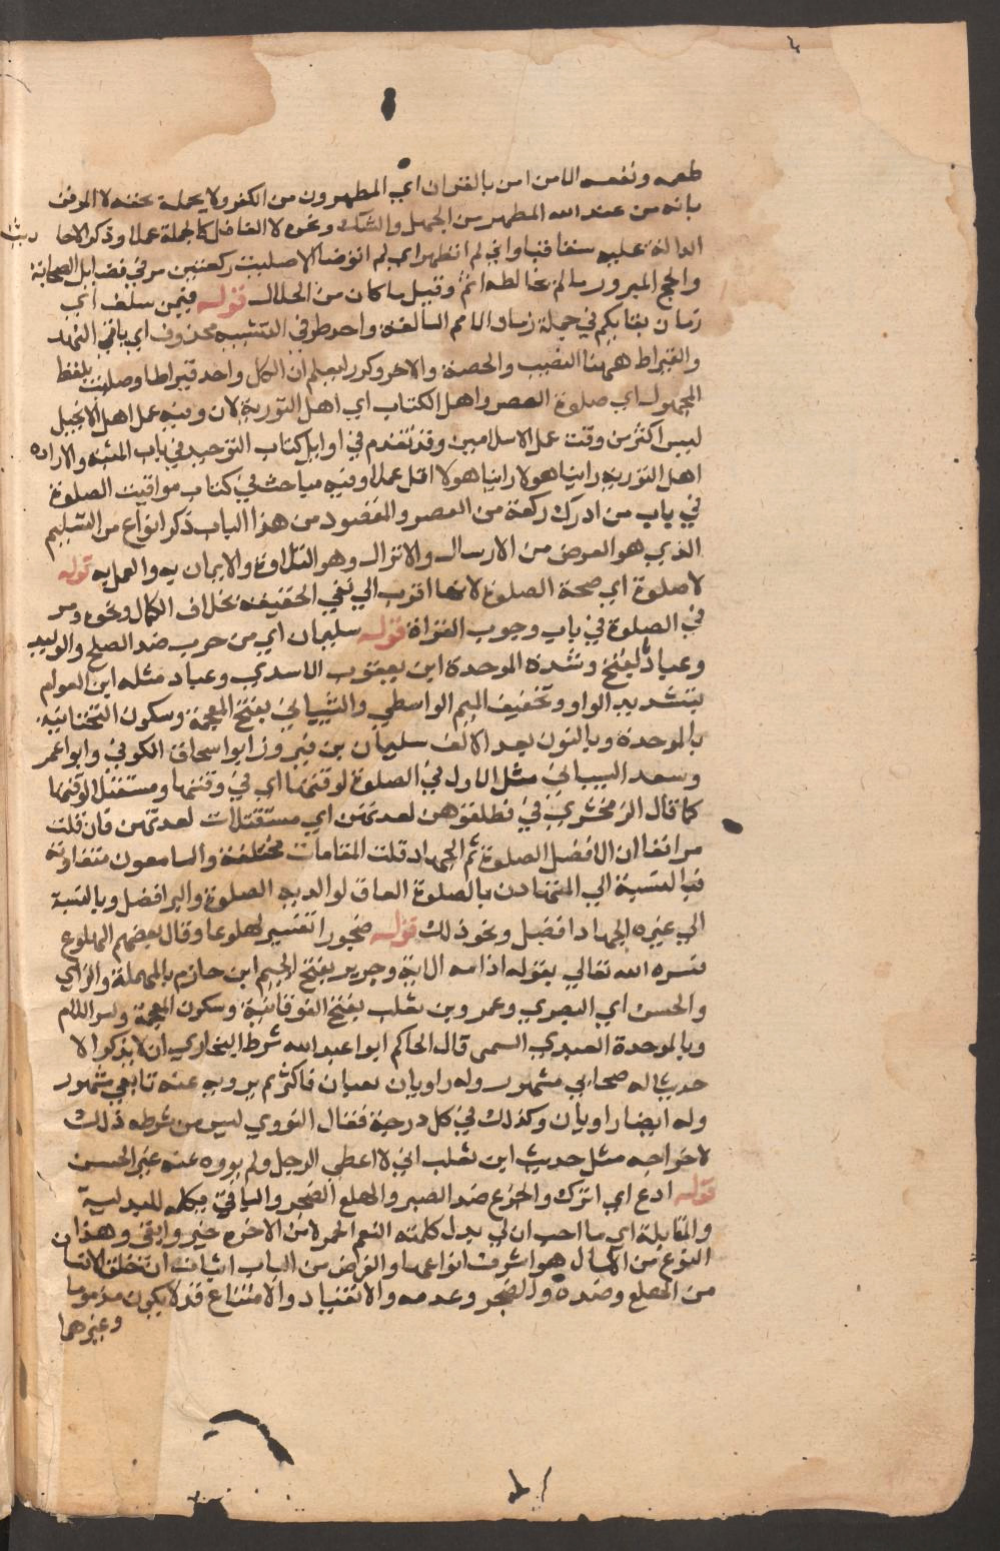 طعمه ونفعه الا من امن بالقران اي المطهرون من الكفر ولا يحمله بحقه الا الموقن
بانه من عند الله المطهر من الجهل والشك ونحوه لا الغافل كالحمار عملا وذكر الاحاديث
الدالة عليه سنقا فيا واني لم اتطهر اي لم اتوضا الا صليت ركعتين مر في فضايل الصحابة
والحج المبرور ما لم يخالطه اثم وقيل ما كان من الحلال قوله فيمن سلف اي
زمان بقايكم في جملة زمان الامم السالفة واحد طرفي التشبيه محذوف اي باقي النهار
والقيراط ههنا النصيب والحصة والاجر وكرر ليعلم ان لكل واحد قيراطا وصليت بلفظ
المجهول اي صلوة العصر واهل الكتاب اي اهل التورية لان وقت عمل اهل الانجيل
ليس اكثر من وقت عمل الاسلاميين وقد تقدم في اوايل كتاب التوحيد في باب المشية والارادة
اهل التورية ربنا هولا ربنا هولا اقل عملا وفيه مباحث في كتاب مواقيت الصلوة
في باب من ادرك ركعة من العصر والمقصود من هذا الباب ذكر انواع من التسليم
الذي هو الغرض من الارسال والانزال وهو التلاوة والايمان به والعمل به قوله
لا صلوة اي صحة الصلوة لانها اقرب الي نفي الحقيقة بخلاف الكمال ونحوه ومر
في الصلوة في باب وجوب القراة قوله سليمان اي من حرب ضد الصلح والوليد
وعباد بفتح وشدة الموحدة ابن يعقوب الاسدي وعباد مثله ابن العوام
بتشديد الواو وتخفيف الميم الواسطي والشيباني بفتح المعجمة وسكون التحتانية
بالموحدة وبالنون بعد الالف سليمان بن فيروز ابو اسحاق الكوفي وابو اعمر
وسعد الشيباني مثل الاول في الصلوة لوقتها اي في وقتها ومستقبل لوقتها
كما قال الزمخشري في فطلقوهن لعدتهن اي مستقبلات لعدتهن فان قلت
مر انفا ان الافضل الصلوة ثم الجهاد قلت المقامات مختلفة والسامعون متفاوتة
فبالنسبة الي المتهاون بالصلوة العاق لوالديه الصلوة والبر افضل وبالنسبة
الي غيره الجهاد افضل ونحو ذلك قوله ضجورا تفسير لهلوعا وقال بعضهم الهلوع
فسره الله تعالي بقوله اذا مسه الاية وجرير بفتح الجيم ابن حازم بالمهملة والزاي
والحسن اي البصري وعمرو بن تغلب بفتح الفوقانية وسكون المعجمة وكسر اللام
وبالموحدة العبدي السمى قال الحاكم ابو عبد الله شرط البخاري ان لا يذكر الا
حديثا له صحابي مشهور وله راويان نعيان فاكثر ثم يرويه عنه تابعي مشهور
وله ايضا راويان وكذلك في كل درجة فقال النووي ليس من شرطه ذلك
لاخراجه مثل حديث ابن تغلب اني لاعطي الرجل ولم يروه عنه غير الحسن
قوله ادع اي اترك والجزع ضد الصبر والهلع الضجر والبا في بكلمه للبدلية
والمقابلة اي ما احب ان لي بدل كلمته النعم الحمر لان الاخره خير وابقى وهذا
النوع من الكمال هو اشرف انواعها والغرض من الباب اثبات ان خلق الانسان
من الهلع وضده والضجر وعدمه والانقياد والامتناع قد لا يكون مذموما
وغيرهما